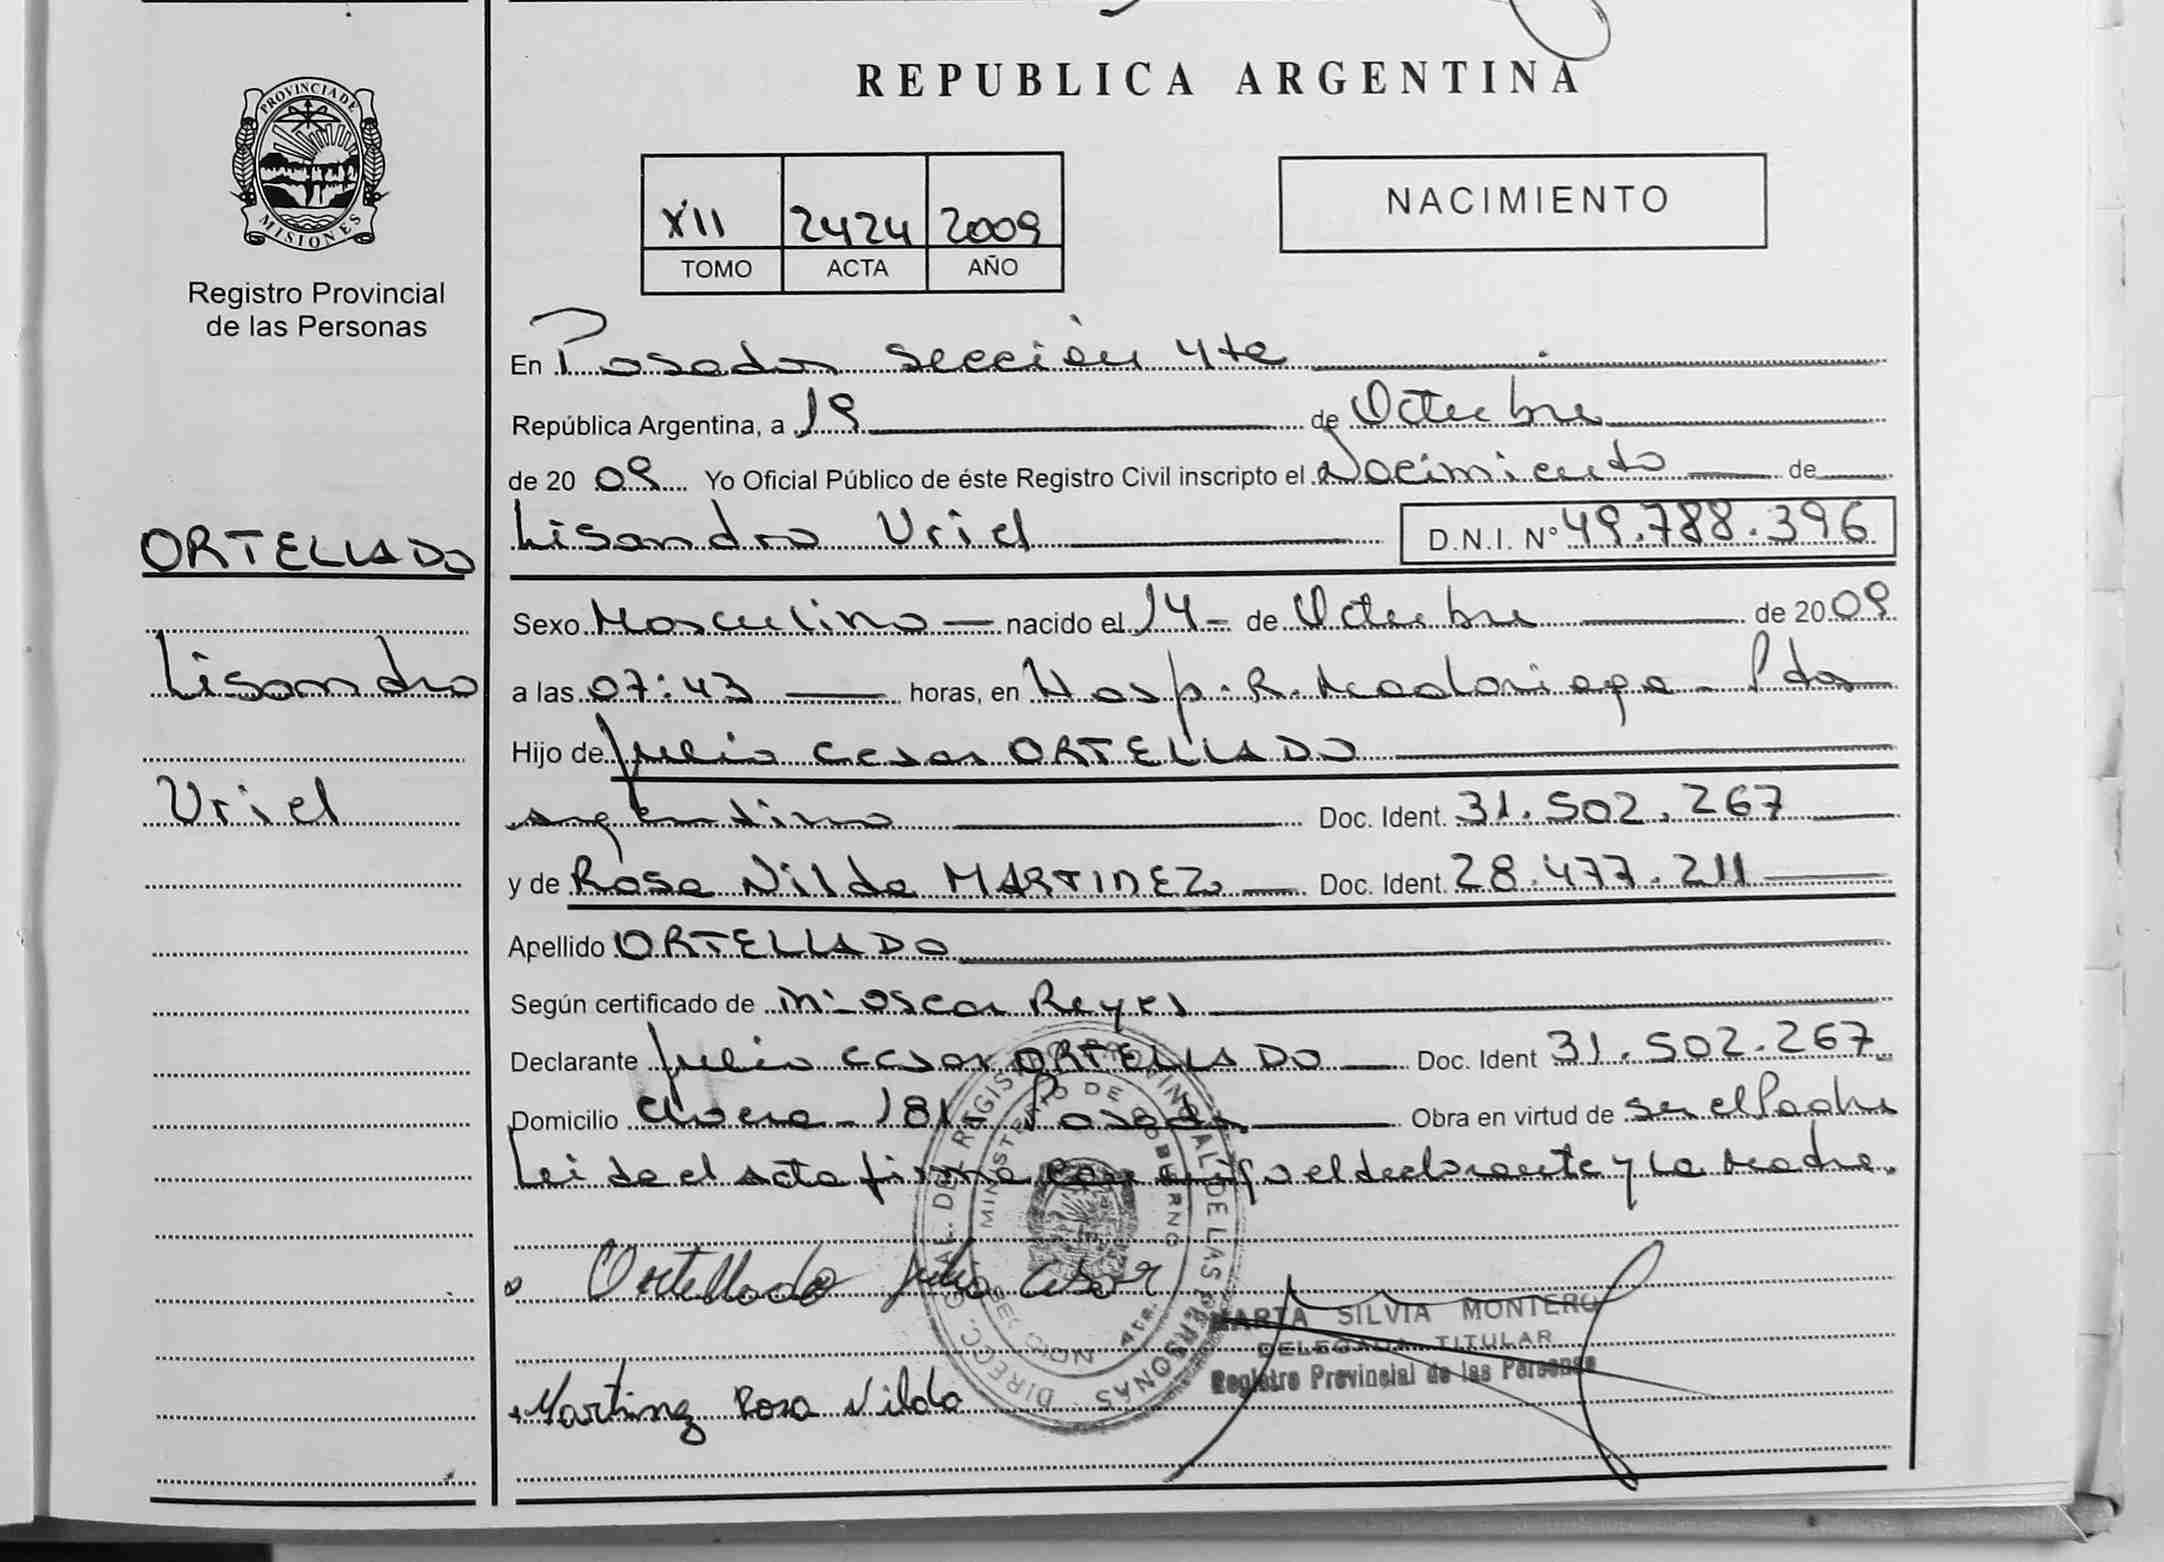 REPUBLICA ARGENTINA
PROVINCIA DE
MISIONES
Registro Provincial
de las Personas
XII 2424 2009
TOMO ACTA AÑO
NACIMIENTO
ORTELLADO
Lisandro
Uriel
En Posadas sección 4ta
República Argentina, a 19 de Octubre
de 2009 Yo Oficial Público de éste Registro Civil inscripto el Nacimiento de
Lisandro Uriel D.N.I. Nº 49.788.396
Sexo Masculino nacido el 14 - de Octubre de 2009
a las 07:43 horas, en Hosp. R. Madariaga - Pdas
Hijo de Julio Cesar ORTELLADO
argentino Doc. Ident. 31.502.267
y de Rosa Nilda MARTINEZ Doc. Ident. 28.477.211
Apellido ORTELLADO
Según certificado de Oscar Reyes
Declarante Julio Cesar ORTELLADO Doc. Ident 31.502.267
Domicilio 181 - Posadas Obra en virtud de ser el Padre
Leida el acta firma conmigo el declarante y la Madre.
Ortellado Julio Cesar
DIRECC. GRAL. DEL REGISTRO PROVINCIAL DE LAS PERSONAS
MINISTERIO DE GOBIERNO
SECCION 4ta.
MARTA SILVIA MONTERO
DELEGADA TITULAR
Registro Provincial de las Personas
Martinez Rosa Nilda